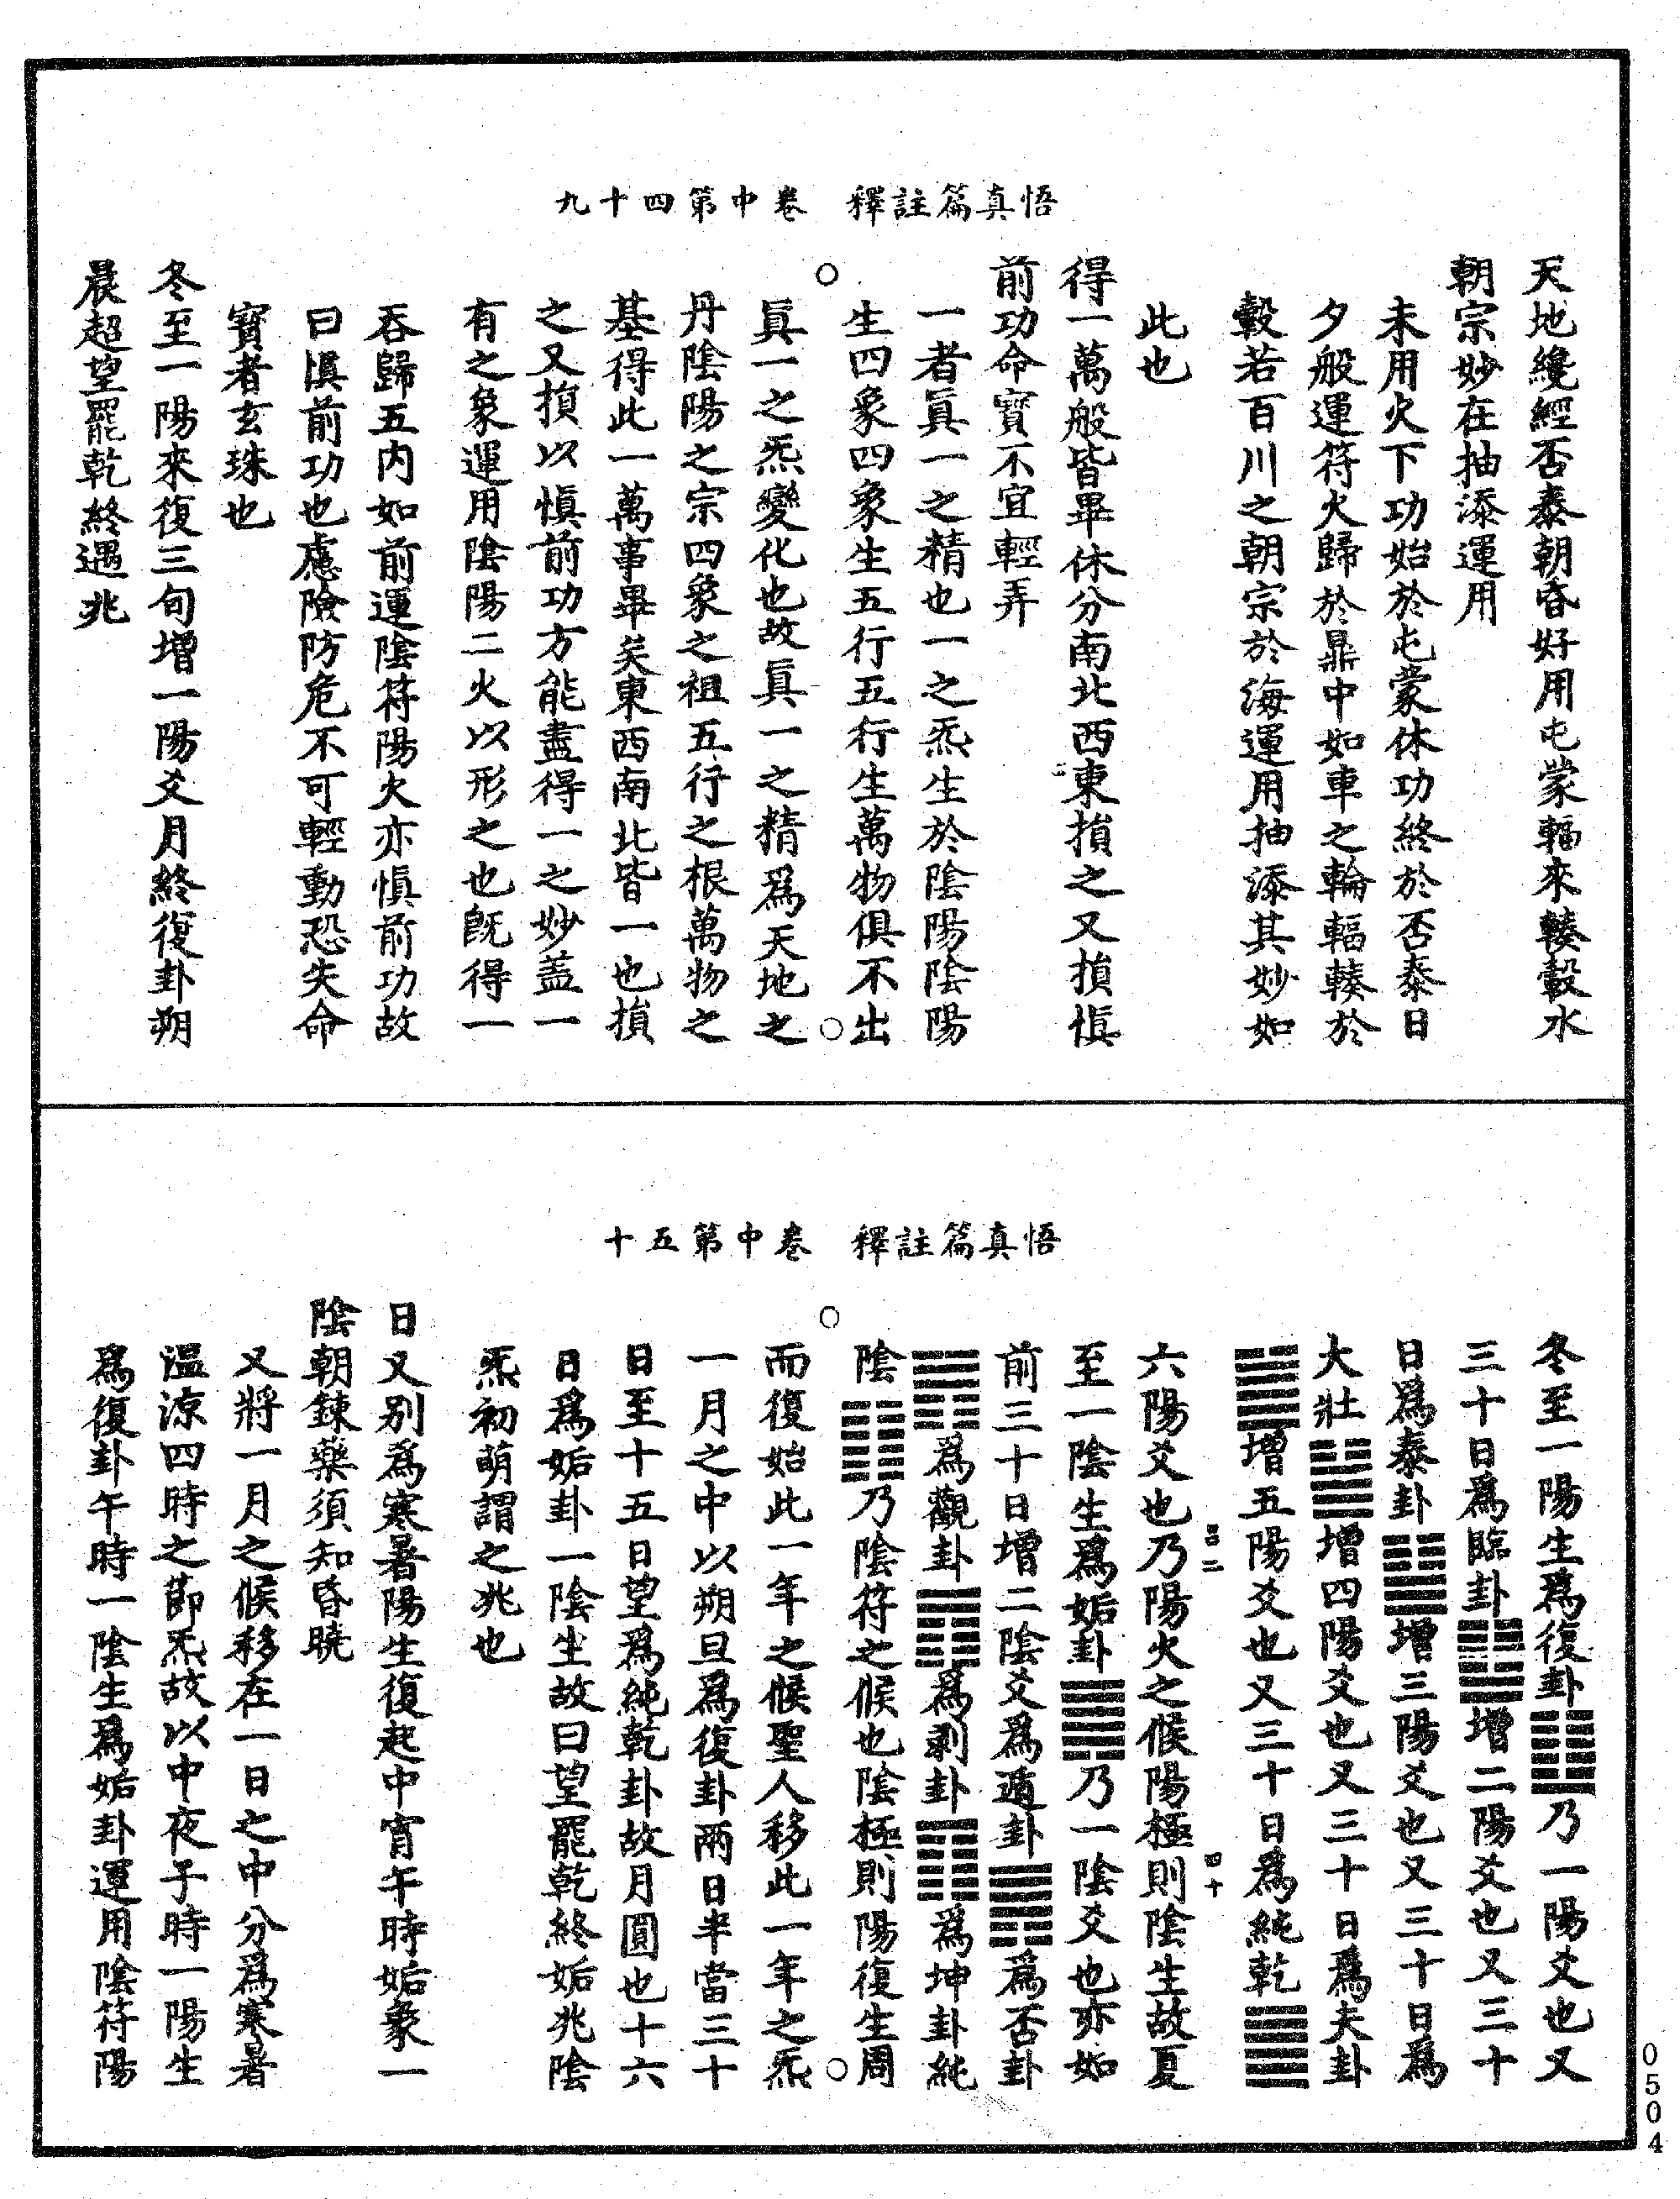 悟真篇註釋　卷中第四十九
天地纔經否泰朝昏好用屯蒙輻來輳轂水
朝宗妙在抽添運用
未用火下功始於屯蒙休功終於否泰日
夕般運符火歸於鼎中如車之輪輻輳於
轂若百川之朝宗於海運用抽添其妙如
此也
得一萬般皆畢休分南北西東損之又損慎
前功命寶不宜輕弄
一者眞一之精也一之炁生於陰陽陰陽
生四象四象生五行五行生萬物俱不出
眞一之炁變化也故眞一之精爲天地之
丹陰陽之宗四象之祖五行之根萬物之
基得此一萬事畢矣東西南北皆一也損
之又損以慎前功方能盡得一之妙蓋一
有之象運用陰陽二火以形之也旣得一
吞歸五内如前運陰符陽火亦慎前功故
曰慎前功也慮險防危不可輕動恐失命
寶者玄珠也
冬至一陽來復三旬增一陽爻月終復卦朔
晨超望罷乾終遇兆
悟真篇註釋　卷中第五十
冬至一陽生爲復卦䷗乃一陽爻也又
三十日爲臨卦䷒增二陽爻也又三十
日爲泰卦䷊增三陽爻也又三十日爲
大壯䷡增四陽爻也又三十日爲夬卦
䷪增五陽爻也又三十日爲純乾䷀
六陽爻也乃陽火之候陽極則陰生故夏
至一陰生爲姤卦䷫乃一陰爻也亦如
前三十日增二陰爻爲遁卦䷠爲否卦
䷋爲觀卦䷓爲剥卦䷖爲坤卦純
陰䷁乃陰符之候也陰極則陽復生周
而復始此一年之候聖人移此一年之炁
一月之中以朔旦爲復卦兩日半當三十
日至十五日望爲純乾卦故月圓也十六
日爲姤卦一陰生故曰望罷乾終姤兆陰
炁初萌謂之兆也
日又别爲寒暑陽生復起中宵午時姤象一
陰朝鍊藥須知昏曉
又將一月之候移在一日之中分爲寒暑
溫涼四時之節炁故以中夜子時一陽生
爲復卦午時一陰生爲姤卦運用陰符陽
0504